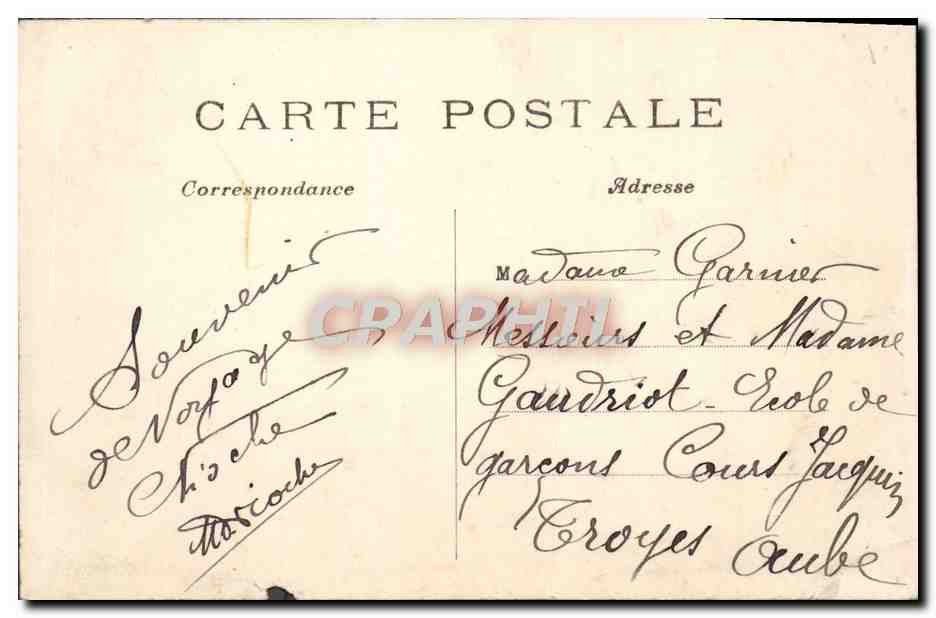 CARTE POSTALE
Correspondance
Adresse
Souvenir
de Voyage
Marioche
Madame Garnier
Messieurs et Madame
Gaudriot - Ecole de
garçons Cours Jacquin
Troyes Aube
CPAPHIL